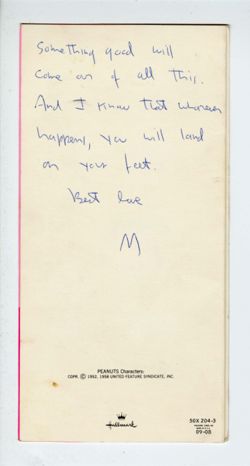 Something good will
come out of all this.
And I know that whatever
happens, you will land
on your feet.
Best love
M
PEANUTS Characters:
COPR. © 1952, 1958 UNITED FEATURE SYNDICATE, INC.
Hallmark
50X 204-3
09-08